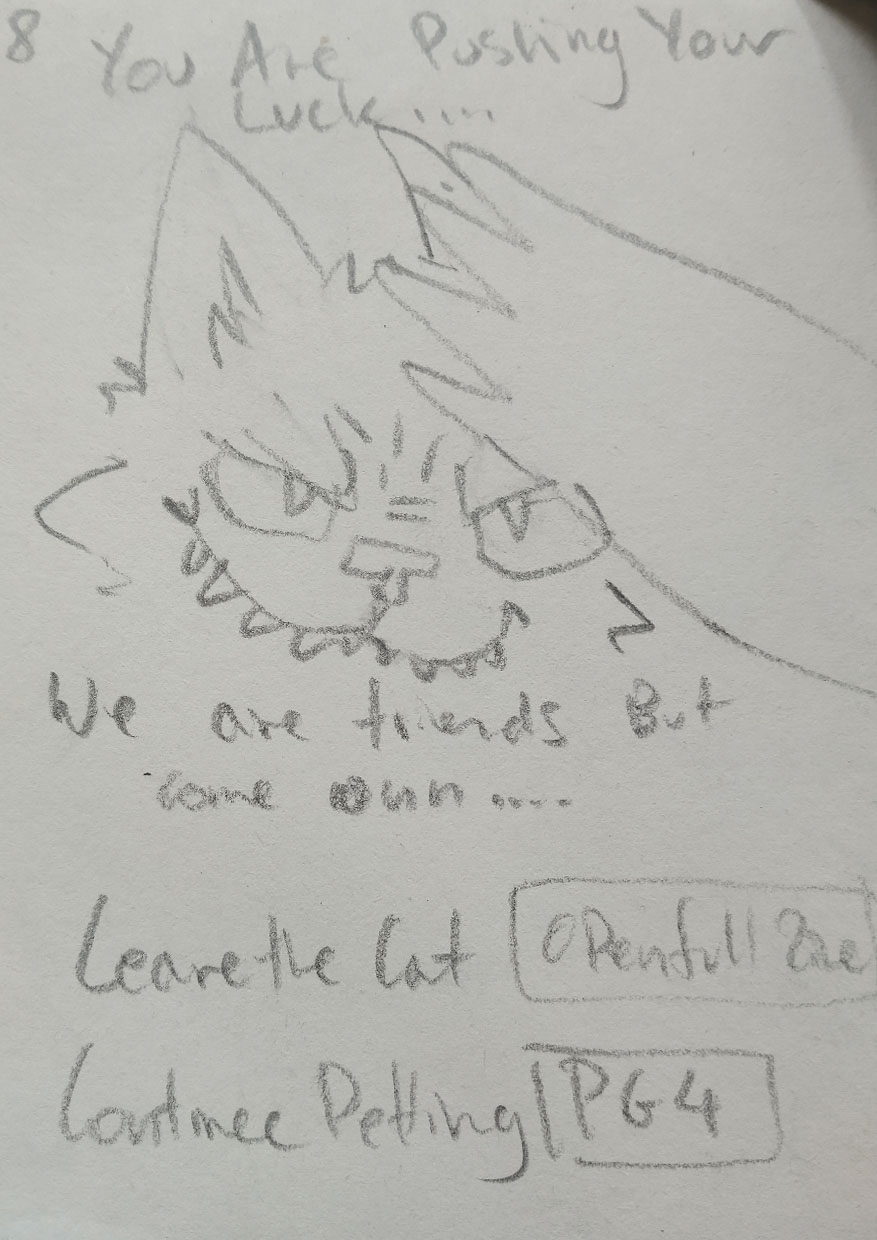 8 You Are Pushing Your
Luck....
We are friends But
come onnn ....
Leave the Cat
Continee Petting PG4